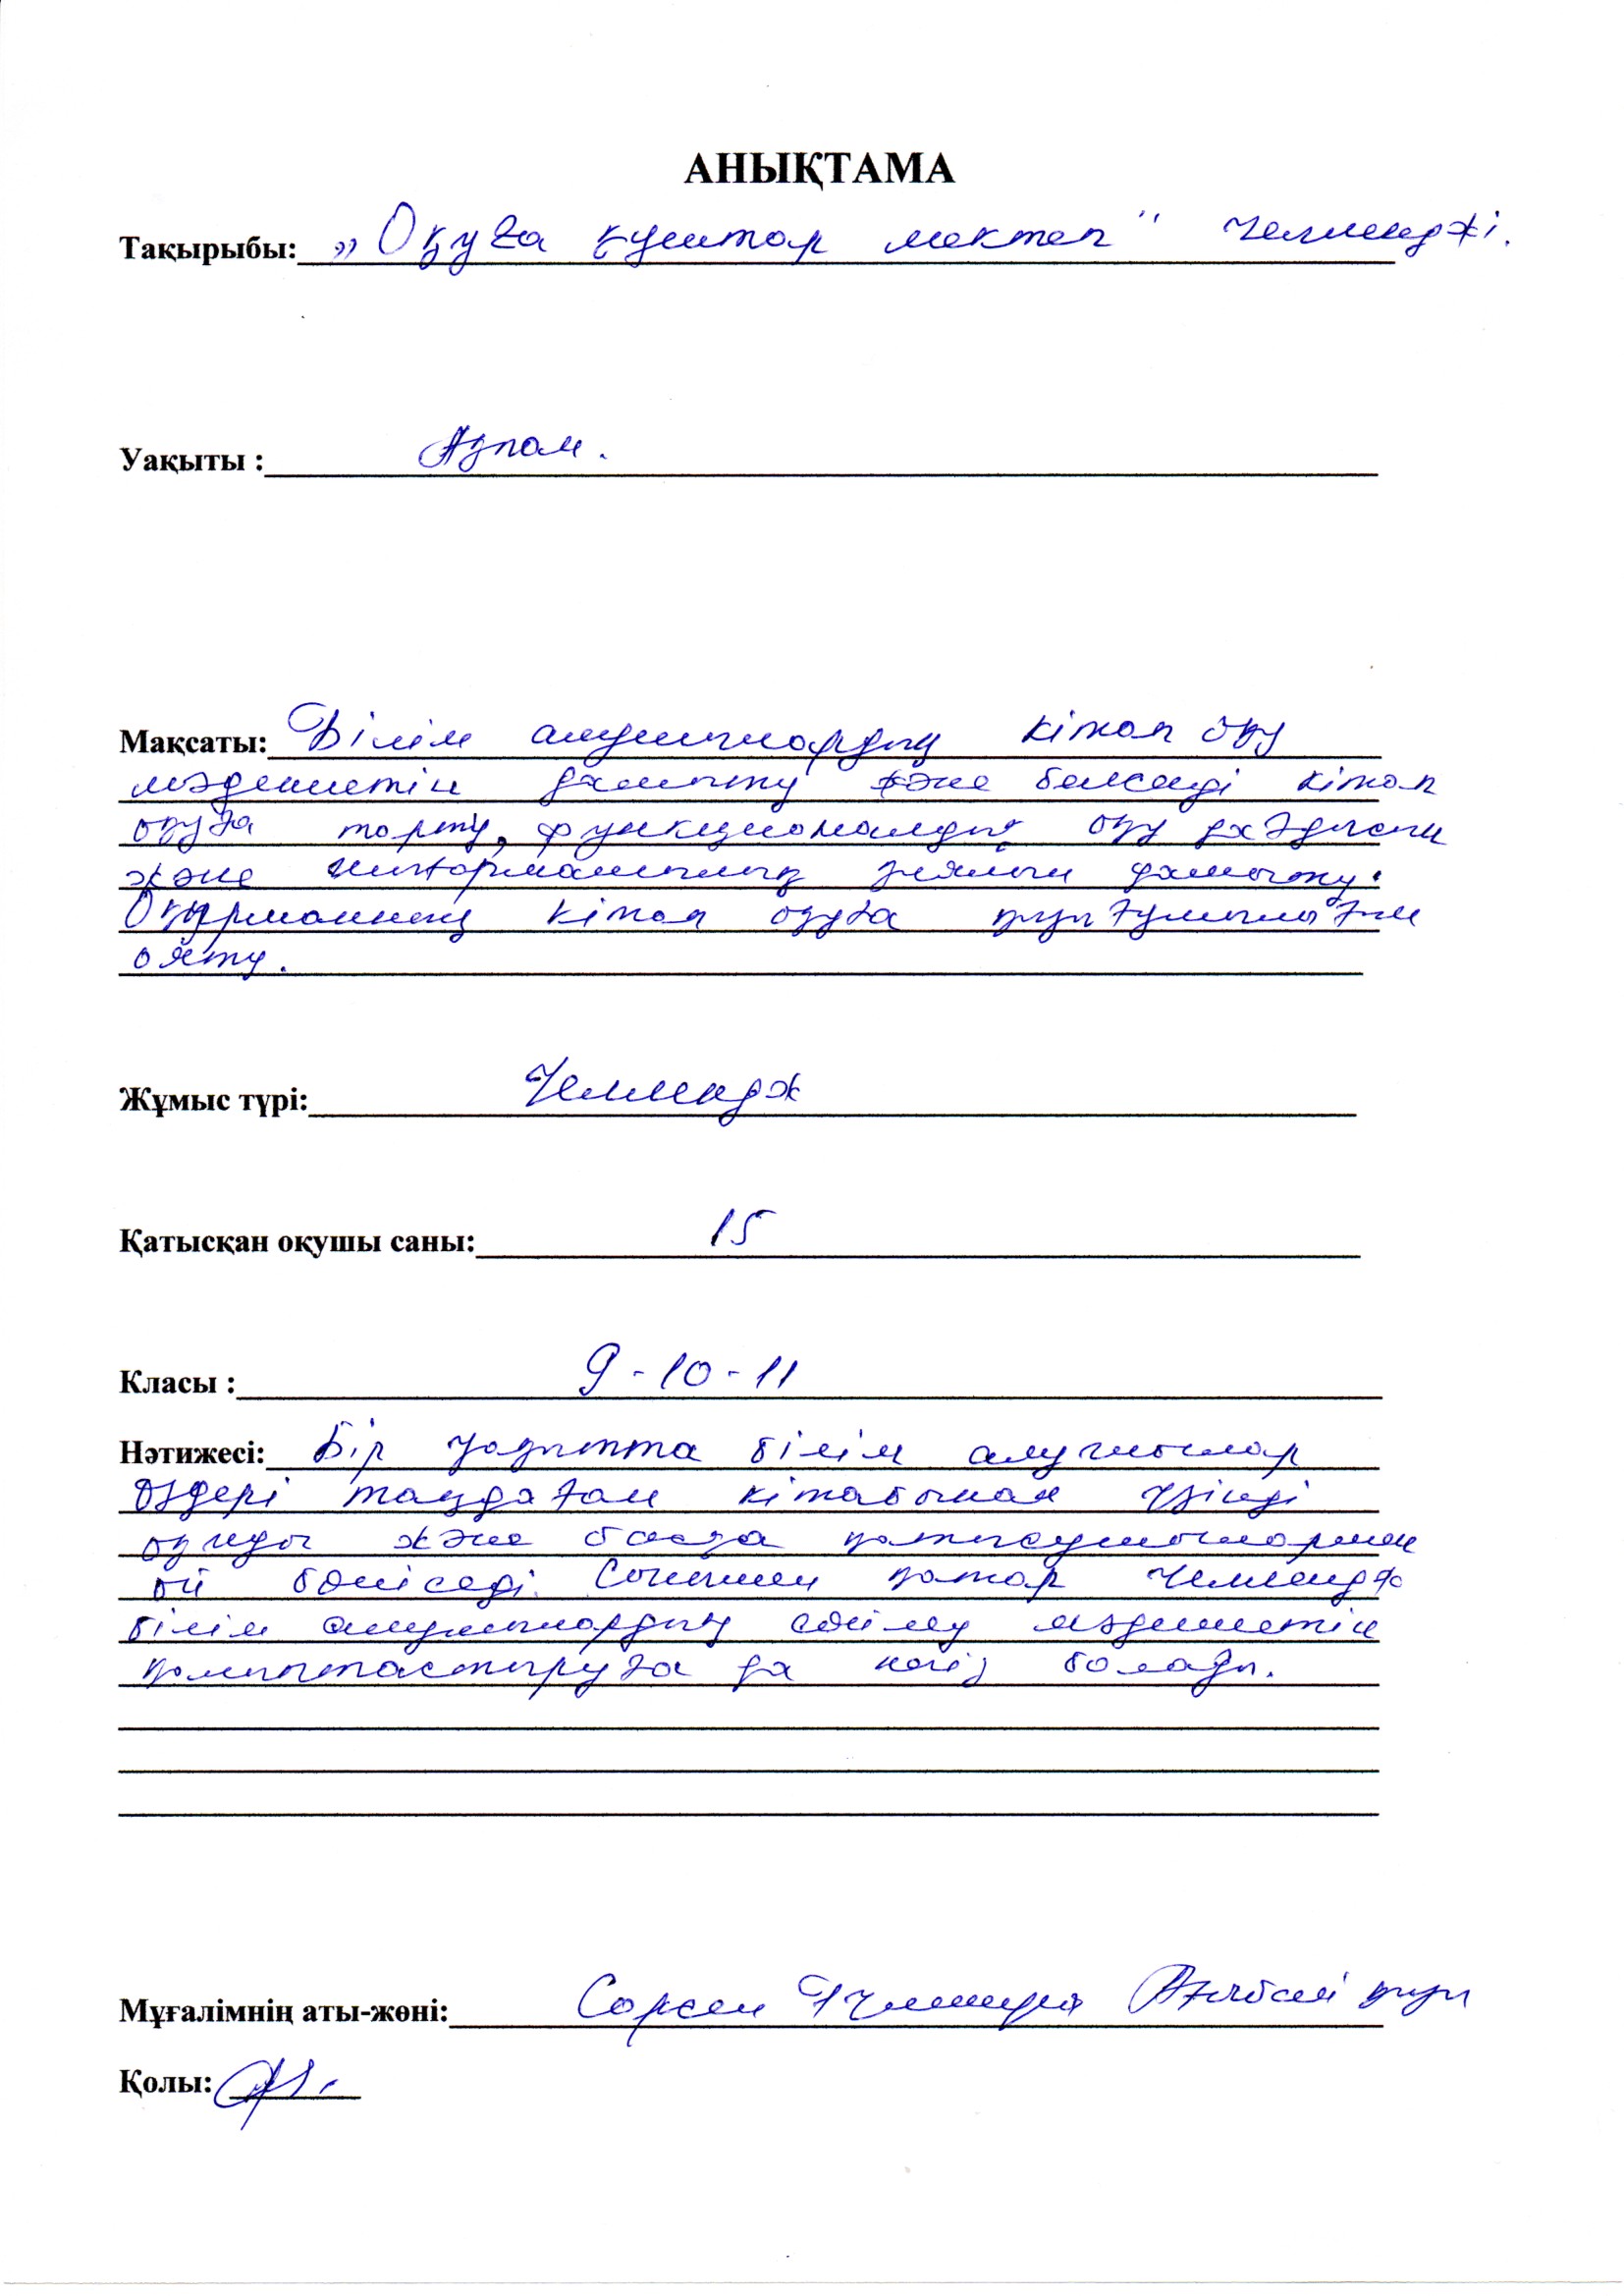 АНЫҚТАМА
Тақырыбы: „Оқуға құштар мектеп" челленджі.
Уақыты : Ақпан.
Мақсаты: Білім алушылардың кітап оқу
мәдениетін дамыту және белсенді кітап
оқуға тарту, функционалдық оқу дағдысын
және шығармашылық зиялын дамыту.
Оқырманның кітап оқуға құлшынысын
ояту.
Жұмыс түрі: Челлендж
Қатысқан оқушы саны: 15
Класы : 9-10-11
Нәтижесі: Бір уақытта білім алушылар
өздері таңдаған кітабынан үзінді
оқиды және басқа қатысушылармен
ой бөліседі. Сонымен қатар челлендж
білім алушылардың сөйлеу мәдениетін
қалыптастыруға да негіз болады.
Мұғалімнің аты-жөні: Сәрсен қызы
Қолы: